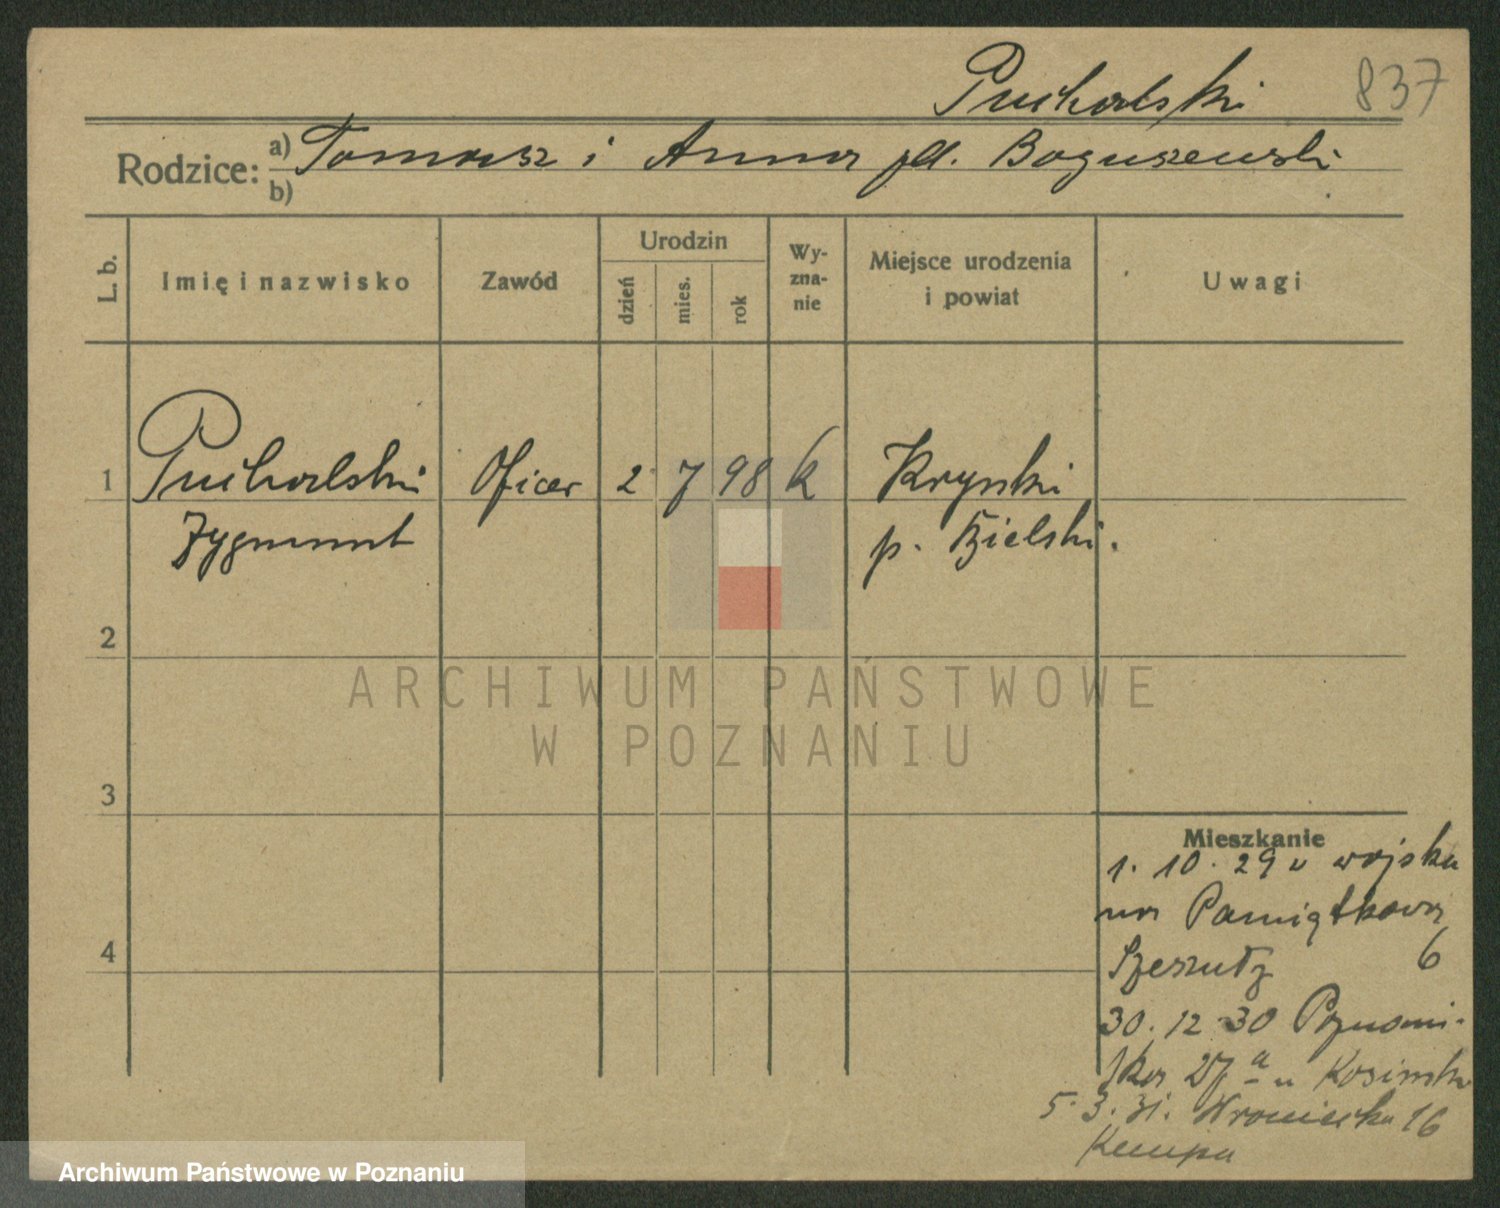 Puchalski 837
Rodzice: a) Tomasz i Anna pd. Boguszewski
b)
L. b. Imię i nazwisko Zawód Urodzin dzień mies. rok Wy-zna-nie Miejsce urodzenia i powiat Uwagi
1 Puchalski Oficer 2 7 98 k Krynki
Zygmunt p. Bielski.
2
ARCHIWUM PAŃSTWOWE
W POZNANIU
3
Mieszkanie
1. 10. 29 u wojska
na Pamiątkowa
4 6
30. 12 30 Poznań-
ska 27a u
5. 3. 31. Wroniecka 16
Kempa
Archiwum Państwowe w Poznaniu